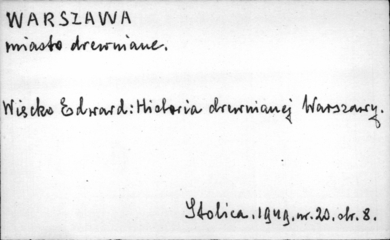 WARSZAWA
miasto drewniane.
Wiścko Edward: Historia drewnianej Warszawy.
Stolica. 1949. nr. 20. str. 8.